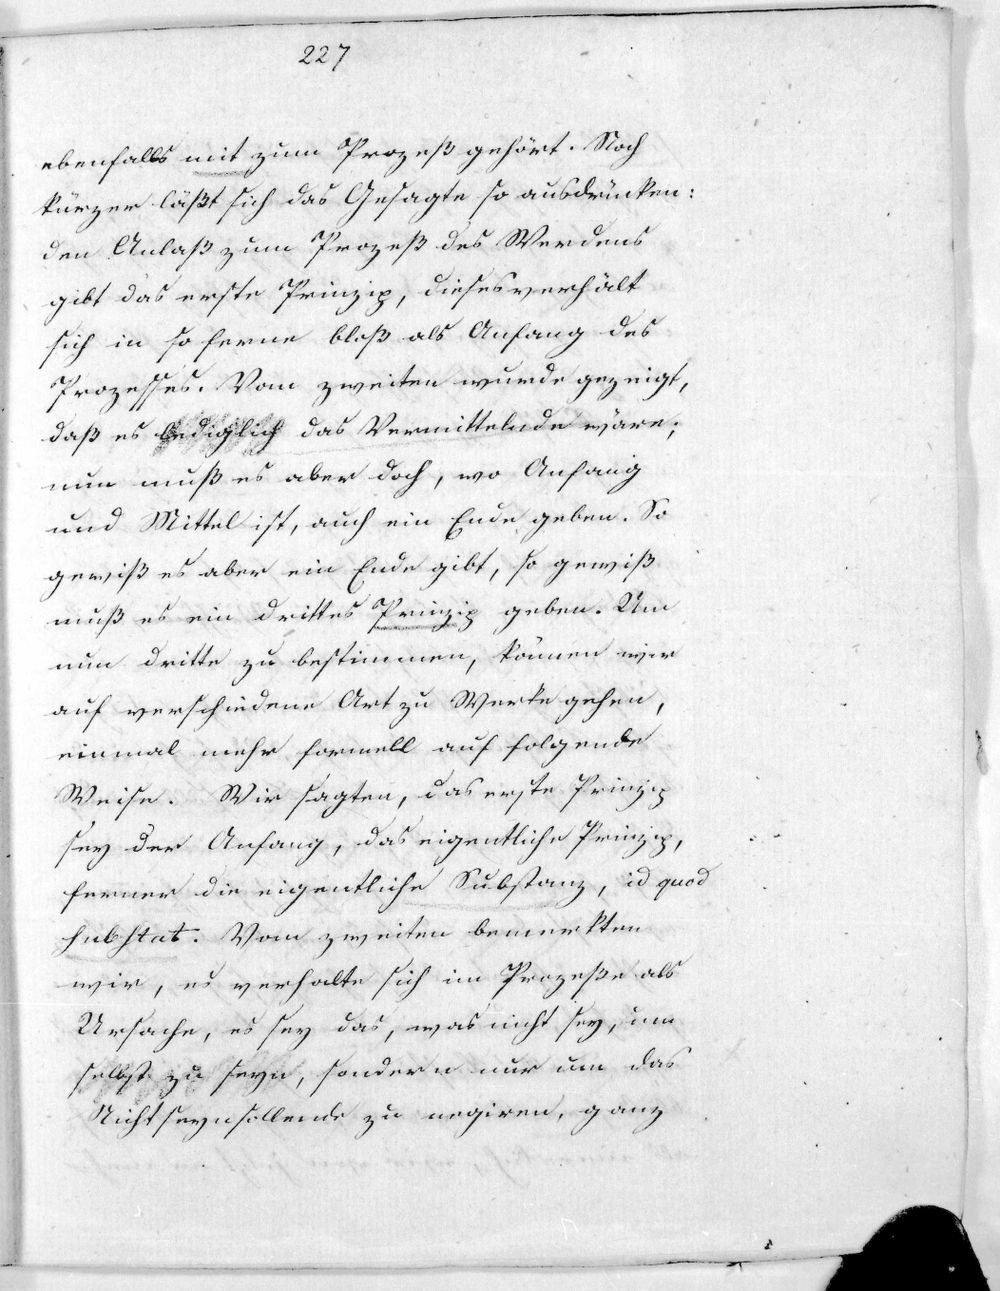 227
ebenfalls mit zum Prozeß gehört. Noch
kürzer läßt sich das Gesagte so ausdrücken:
den Anlaß zum Prozeß des Werdens
gibt das erste Prinzip, dieses verhält
sich in so ferne bloß als Anfang des
Prozesses. Vom zweiten wurde gezeigt,
daß es lediglich das Vermittelnde wäre;
nun muß es aber doch, wo Anfang
und Mittel ist, auch ein Ende geben. So
gewiß es aber ein Ende gibt, so gewiß
muß es ein drittes Prinzip geben. Um
nun dritte zu bestimmen, können wir
auf verschiedene Art zu Werke gehen,
einmal mehr formell auf folgende
Weise. Wir sagten, das erste Prinzip
sey der Anfang, das eigentliche Prinzip,
ferner die eigentliche Substanz, id quod
substat. Vom zweiten bemerkten
wir, es verhalte sich im Prozeße als
Ursache, es sey das, was nicht sey, um
selbst zu seyn, sondern nur um das
Nichtseynsollende zu negiren, ganz